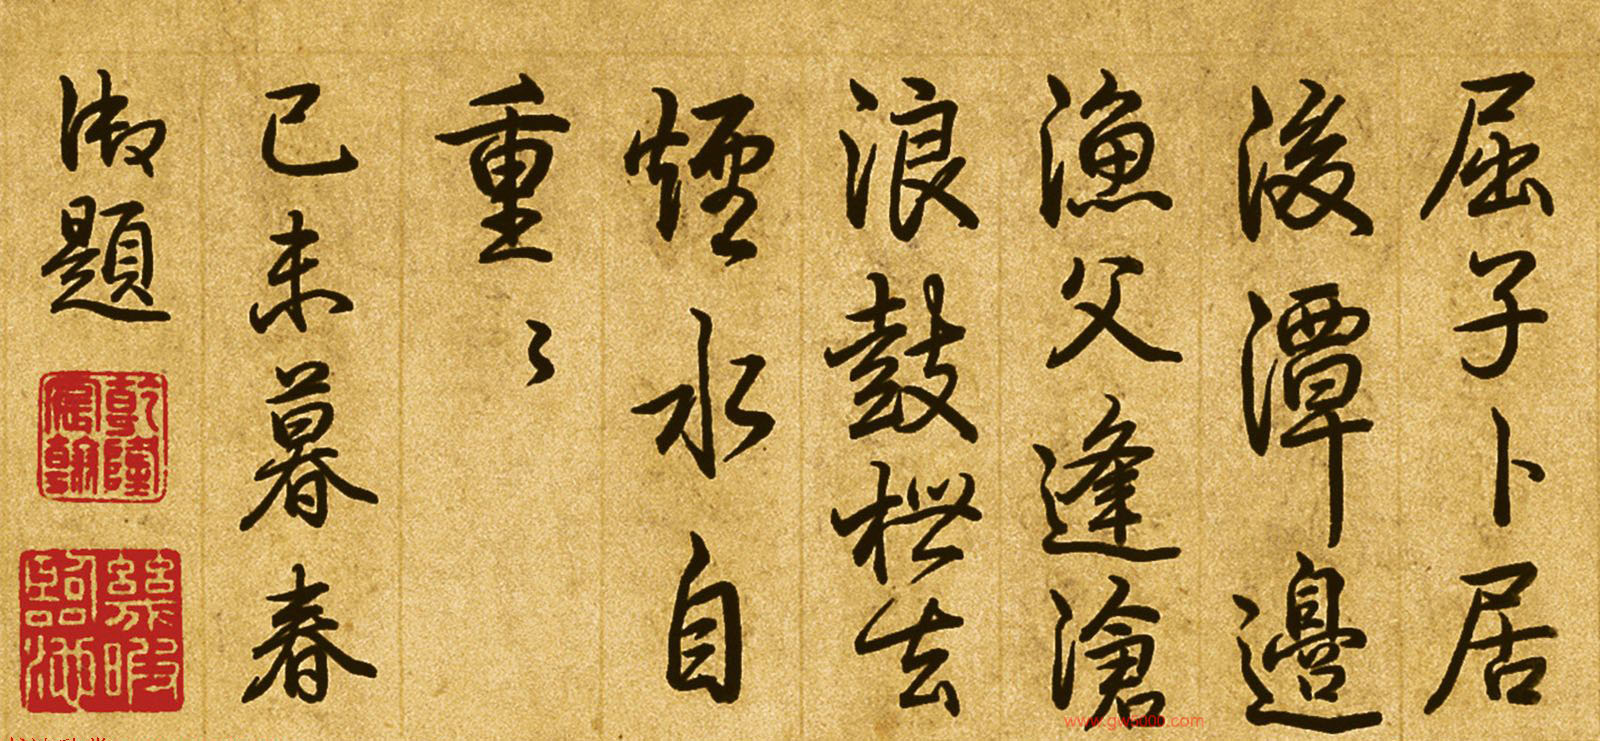 屈子卜居
後潭邊
漁父逢滄
浪鼓枻去
煙水自
重〻
己未暮春
御題
乾隆宸翰
幾暇臨池
www.gw5000.com